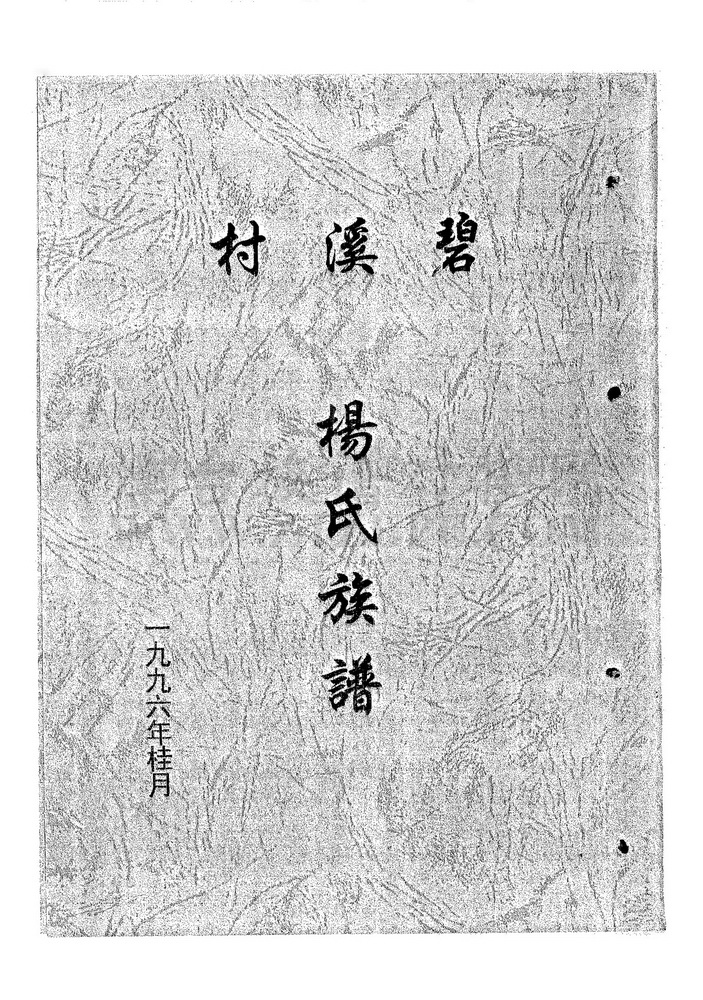 碧溪村
楊氏族譜
一九九六年桂月